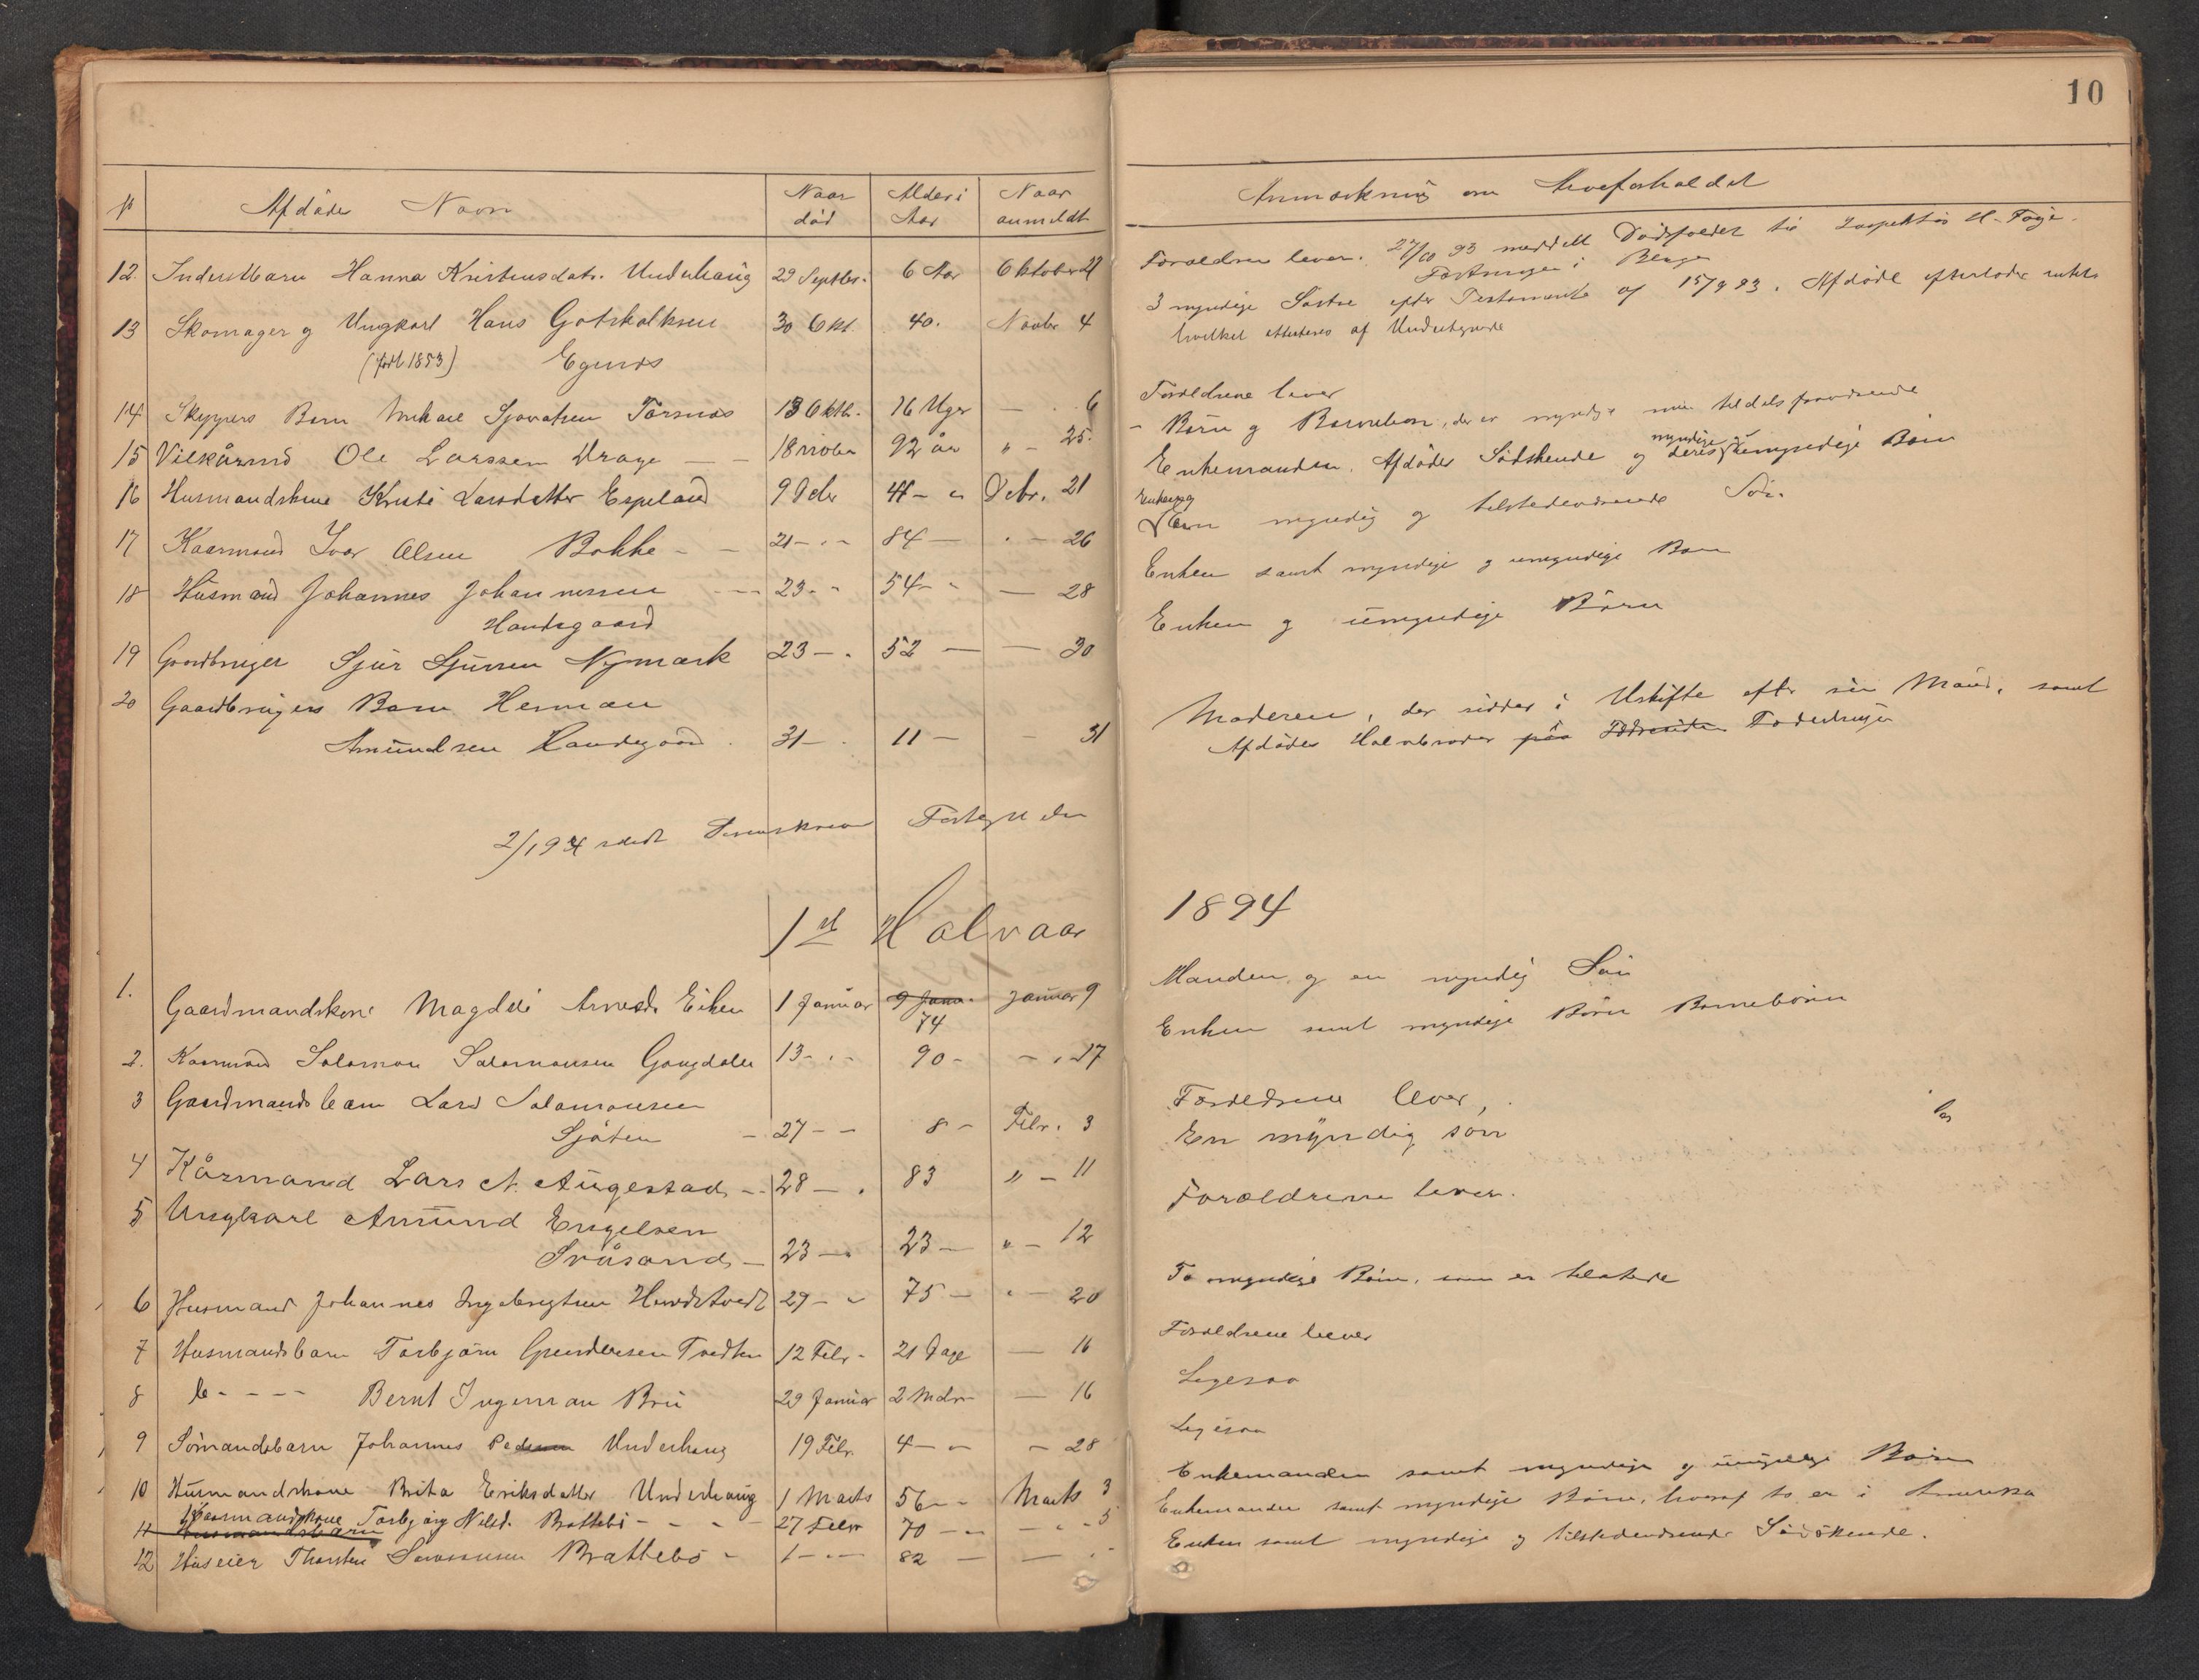 10
№ Afdødes Navn Naar død Alder i Aar Naar anmeldt Anmærkning om Arveforholdet
12. Inderstbarn Hanna Kristensdatr. Underhaug 29 Septbr. 6 Aar Oktober 27 Forældrene lever. 27/10 93 meddelt Dødsfaldet til Inspektør
13 Skomager og Ungkarl Hans Gotskalksen 30 Okt. 40. Novbr 4 3 myndige Søstre efter Testamente af 15/9 93. Afdøde efterlader intet
(født 1853) Egenes hvilket attesteres af Undertegnede
14 Skippers Barn Mikael Sjovatsen Torsnes 13 Oktb. 16 Uger — 6 Forældrene lever
15 Vilkårmd Ole Larssen Drage — — 18 Novbr 92 år " - 25. - Børn og Barnebørn, der er myndige
16 Husmandskone Kristi Larsdatter Espeland 9 Debr Debr. 21 Enkemanden. Afdødes Sødskende og deres myndige og umyndige Børn
17 Kaarmand Ivar Olsen Bakke - - 21 - - 84 — - — 26 Enken og En myndig og tilstedeværende Søn.
18 Husmand Johannes Johannessen — 23 - - 54 - - — 28 Enken samt myndige og umyndige Børn
Handegaard
19 Gaardbruger Sjur Sjursen Nymark 23 — . 52 — — 30 Enken og umyndige Børn
20 Gaardbrugers Barn Herman
Amundsen Handegaard . 31 — . 11 — - 31 Moderen, der sidder i Uskifte efter sin Mand, samt
Afdødes Halvbroder på Fædresiden
2/1 94 sendt Sorenskriver Fortegnelsen
1st Halvaar 1894
1. Gaardmandskone Magdli Arnesdr Eiken 1 Januar 9 Janr. 74 Januar 9 Manden og en myndig Søn
2. Kaarmand Salomon Salamonsen Gangdalen 13 - . - 90 - - . 17 Enken samt myndige Børn Barnebørn
3 Gaardmandsbarn Lars Salamonsen
Sjåten - 27 - - 8 - Febr. 3 Forældrene lever,
4 Kårmand Lars A. Augestad - - 28 — . 83 " — 11 En myndig søn
5 Ungkarl Amund Engelsen
Svåsand - 23 — 23 — " — 12 Forældrene lever.
6 Husmand Johannes Ingebrigtsen 29 - - 75 — " — 20 To myndige Børn, som er tilstede
7 Husmandsbarn Torbjørn Gundersen Tvedten 12 Febr - 21 Dage — 16 Forældrene lever
8 - - - - Bernt Ingeman Bru 29 Januar 2 Mdr — 16 Ligesaa
9 Sømandsbarn Johannes Pedersen Underhaug 19 Febr. 4 — - - 28 Ligesaa
10 Husmandskone Brita Eriksdatter Underhaug 1 Marts 56 - - Marts 3 Enkemanden samt myndige og umyndige Børn
11 Husmandsbarn Kaarmandskone Torbjørg Nilsd. Brattebø - - - 27 Febr 70 — - — - - 5 Enkemanden samt myndige Børn, hvoraf to er i Amerika
12 Huseier Thorsten Brattebø - 1 - - — 82 — — Enken samt myndige og tilstedeværende Sødskende.